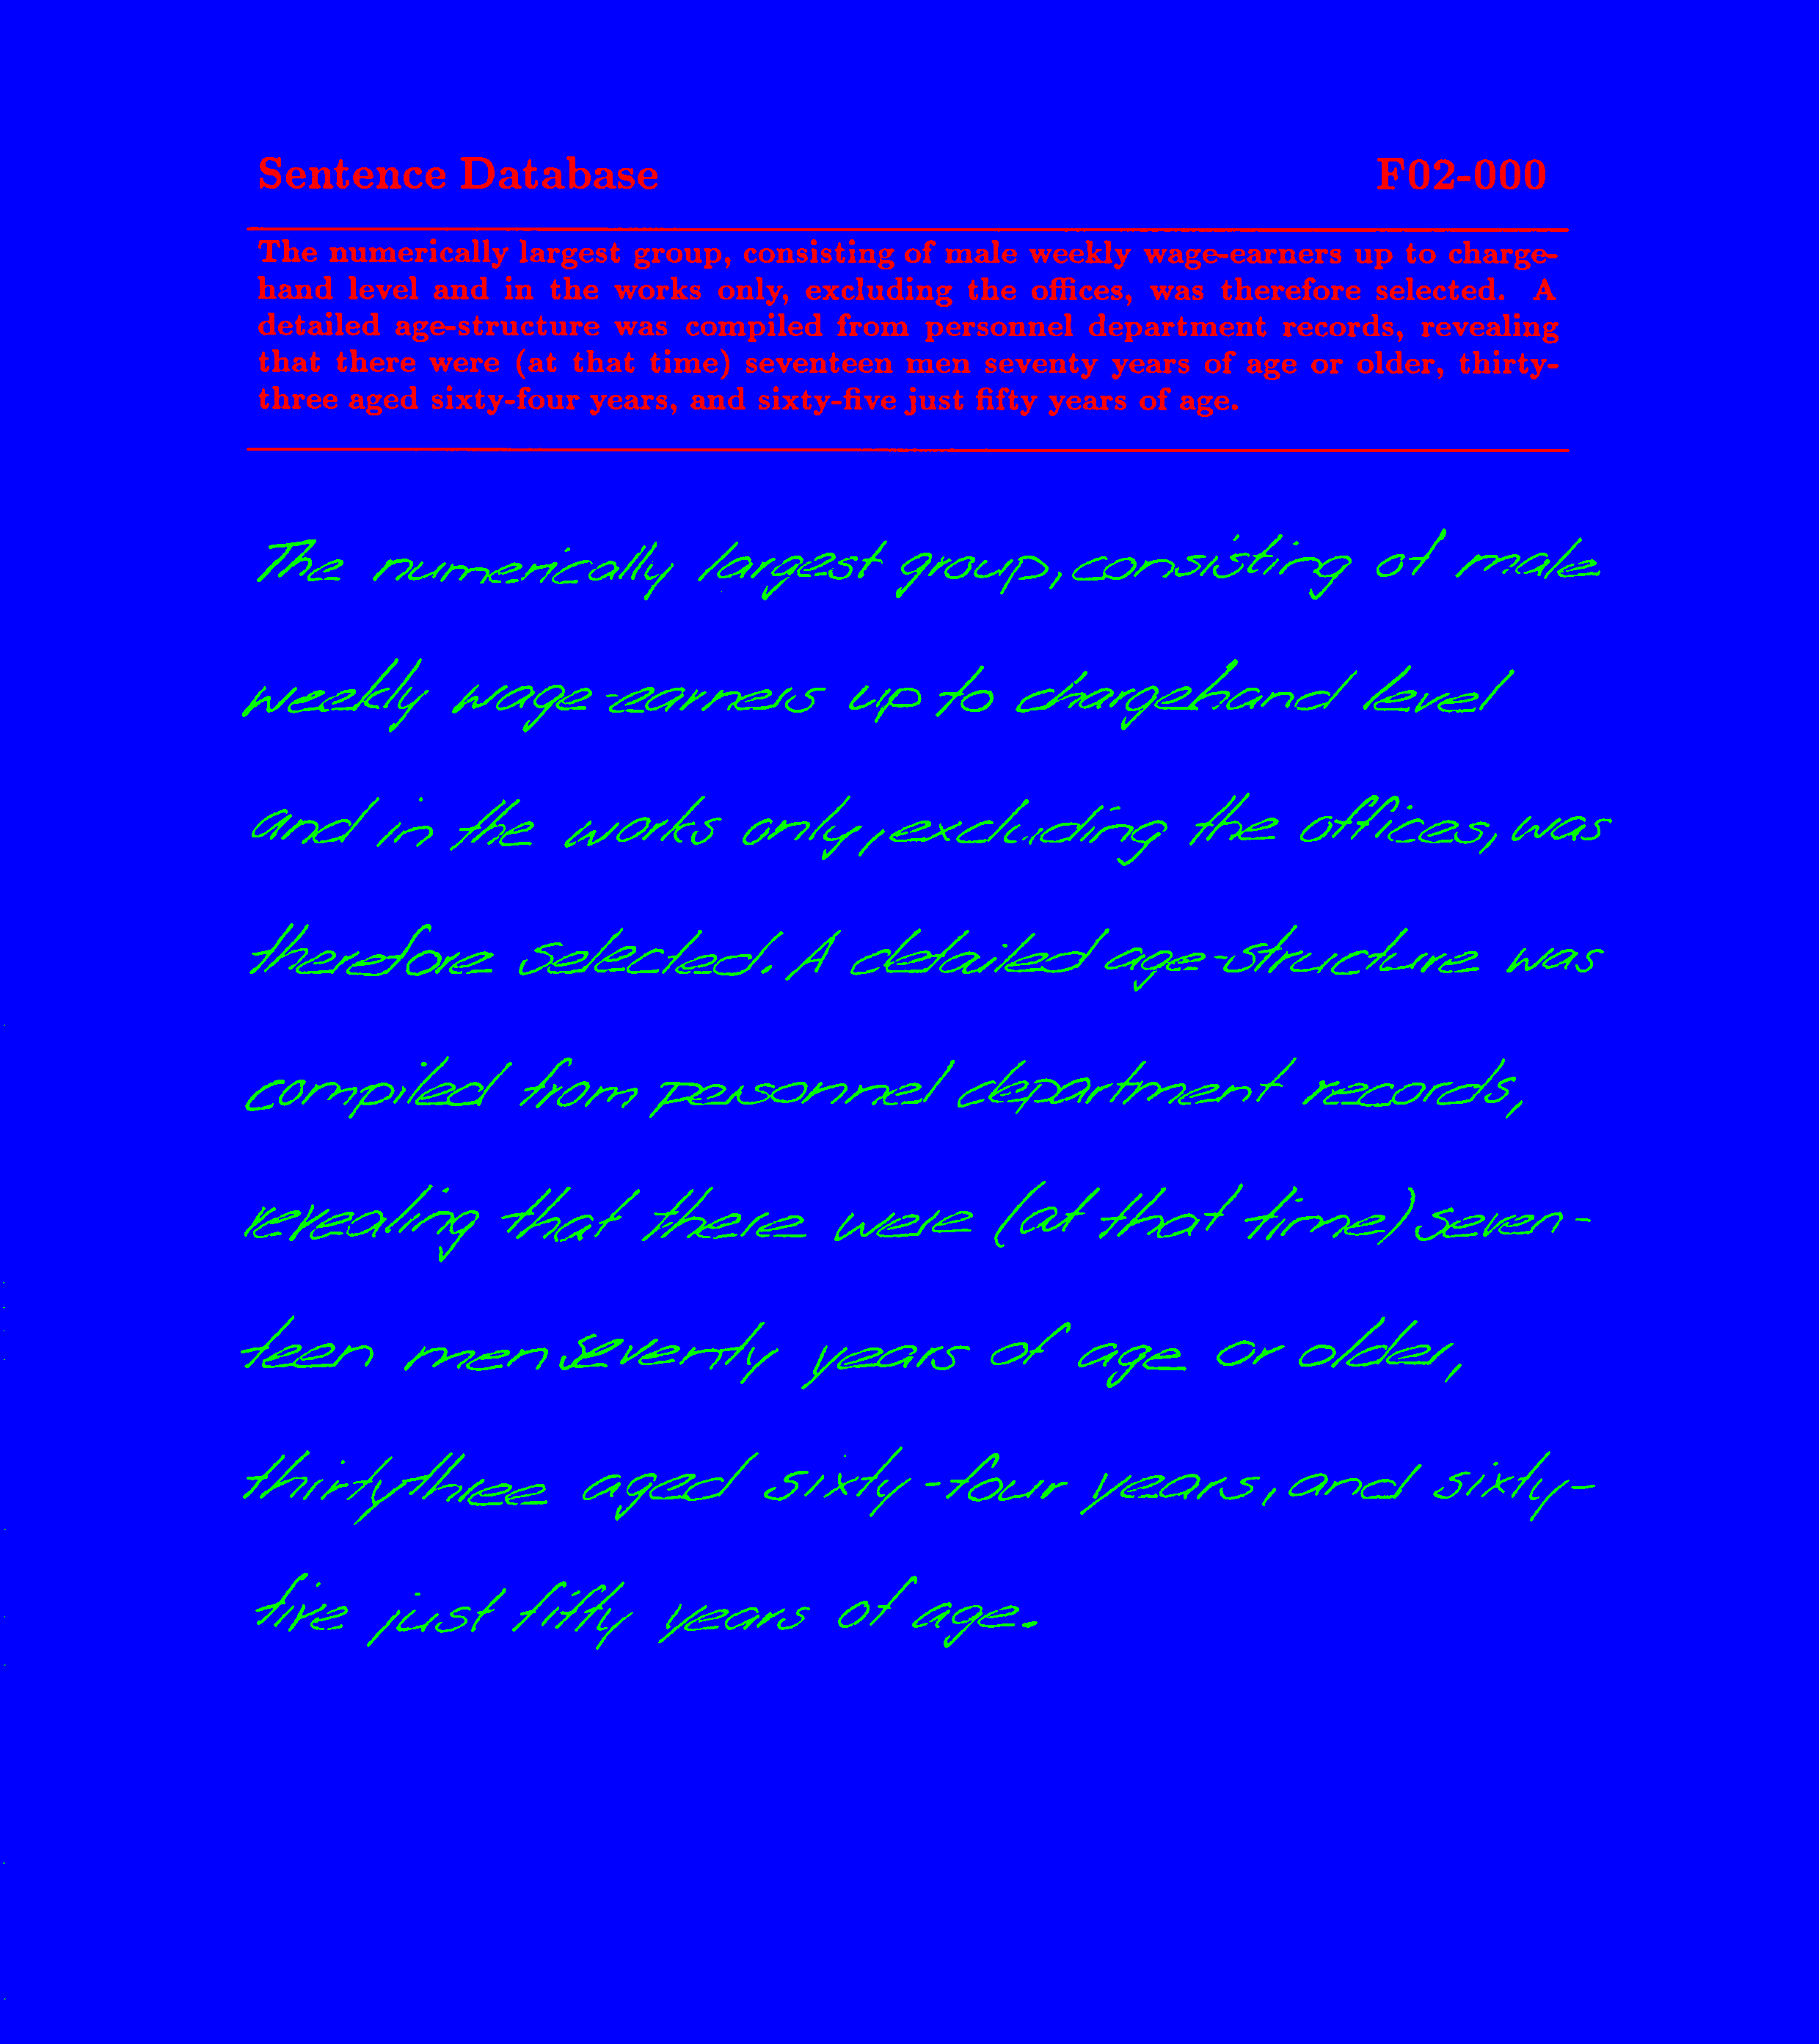 Sentence Database F02-000
The numerically largest group, consisting of male weekly wage-earners up to charge-
hand level and in the works only, excluding the offices, was therefore selected. A
detailed age-structure was compiled from personnel department records, revealing
that there were (at that time) seventeen men seventy years of age or older, thirty-
three aged sixty-four years, and sixty-five just fifty years of age.
The numerically largest group, consisting of male
weekly wage-earners up to chargehand level
and in the works only, excluding the offices, was
therefore selected. A detailed age-structure was
compiled from personnel department records,
revealing that there were (at that time) seven-
teen men seventy years of age or older,
thirtythree aged sixty-four years, and sixty-
five just fifty years of age.